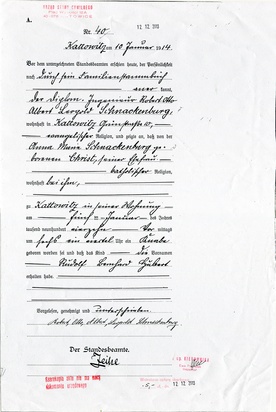 A.
Nr. 40.
Kattowitz, am 10. Januar 1914.
Vor dem unterzeichneten Standesbeamten erschien heute, der Persönlichkeit nach
durch sein Familienstammbuch
kannt,
der Diplom. Ingenieur Robert Otto
Albert Leopold Schnackenburg,
wohnhaft in Kattowitz
evangelischer Religion, und zeigte an, daß von der
Anna Maria Schnackenburg ge-
borenen Christ, seiner Ehefrau
katholischer Religion,
wohnhaft bei ihm,
zu Kattowitz in seiner Wohnung
am fünften Januar des Jahres
tausend neunhundert vierzehn Vormittags
um sechs ein viertel Uhr ein Knabe
geboren worden sei und daß das Kind die Vornamen
Rudolf Bernhard Hubert
erhalten habe.
Vorgelesen, genehmigt und unterschrieben
Robert Otto Albert Leopold Schnackenburg
Der Standesbeamte.